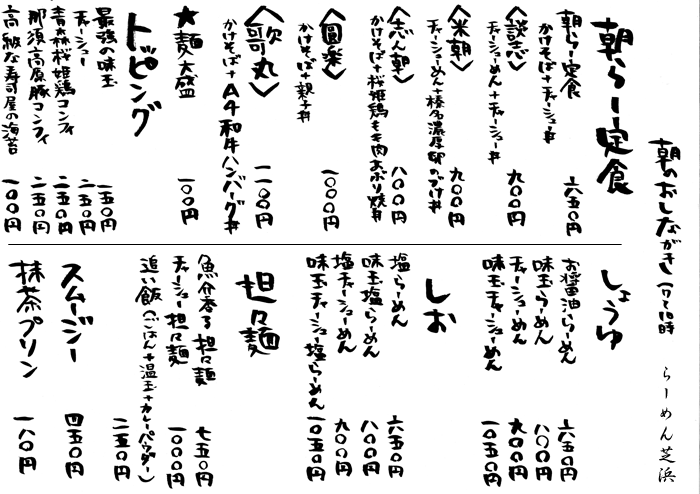 朝のおしながき(7〜10時)
らーめん芝浜
朝らー定食
朝らー定食
かけそば+チャーシュー丼 六五〇円
〈談志〉
チャーシューめん+チャーシュー丼 九〇〇円
〈米朝〉
チャーシューめん+榛名濃厚卵のづけ丼 九〇〇円
〈志ん朝〉
かけそば+桜姫鶏もも肉あぶり焼丼 八〇〇円
〈圓楽〉
かけそば+親子丼 一〇〇〇円
〈歌丸〉
かけそば+A4和牛ハンバーグ丼 一一〇〇円
★麺大盛 一〇〇円
トッピング
最強の味玉 一五〇円
チャーシュー 二五〇円
青森桜姫鶏コンフィ 二五〇円
那須高原豚コンフィ 二五〇円
高級な寿司屋の海苔 一〇〇円
しょうゆ
お醤油らーめん 六五〇円
味玉らーめん 八〇〇円
チャーシューめん 九〇〇円
味玉チャーシューめん 一〇五〇円
しお
塩らーめん 六五〇円
味玉塩らーめん 八〇〇円
塩チャーシューめん 九〇〇円
味玉チャーシュー塩らーめん 一〇五〇円
担々麺
魚介香る担々麺 七五〇円
チャーシュー担々麺 一〇〇〇円
追い飯(ごはん+温玉+カレーパウダー) 二五〇円
スムージー 四五〇円
抹茶プリン 一八〇円